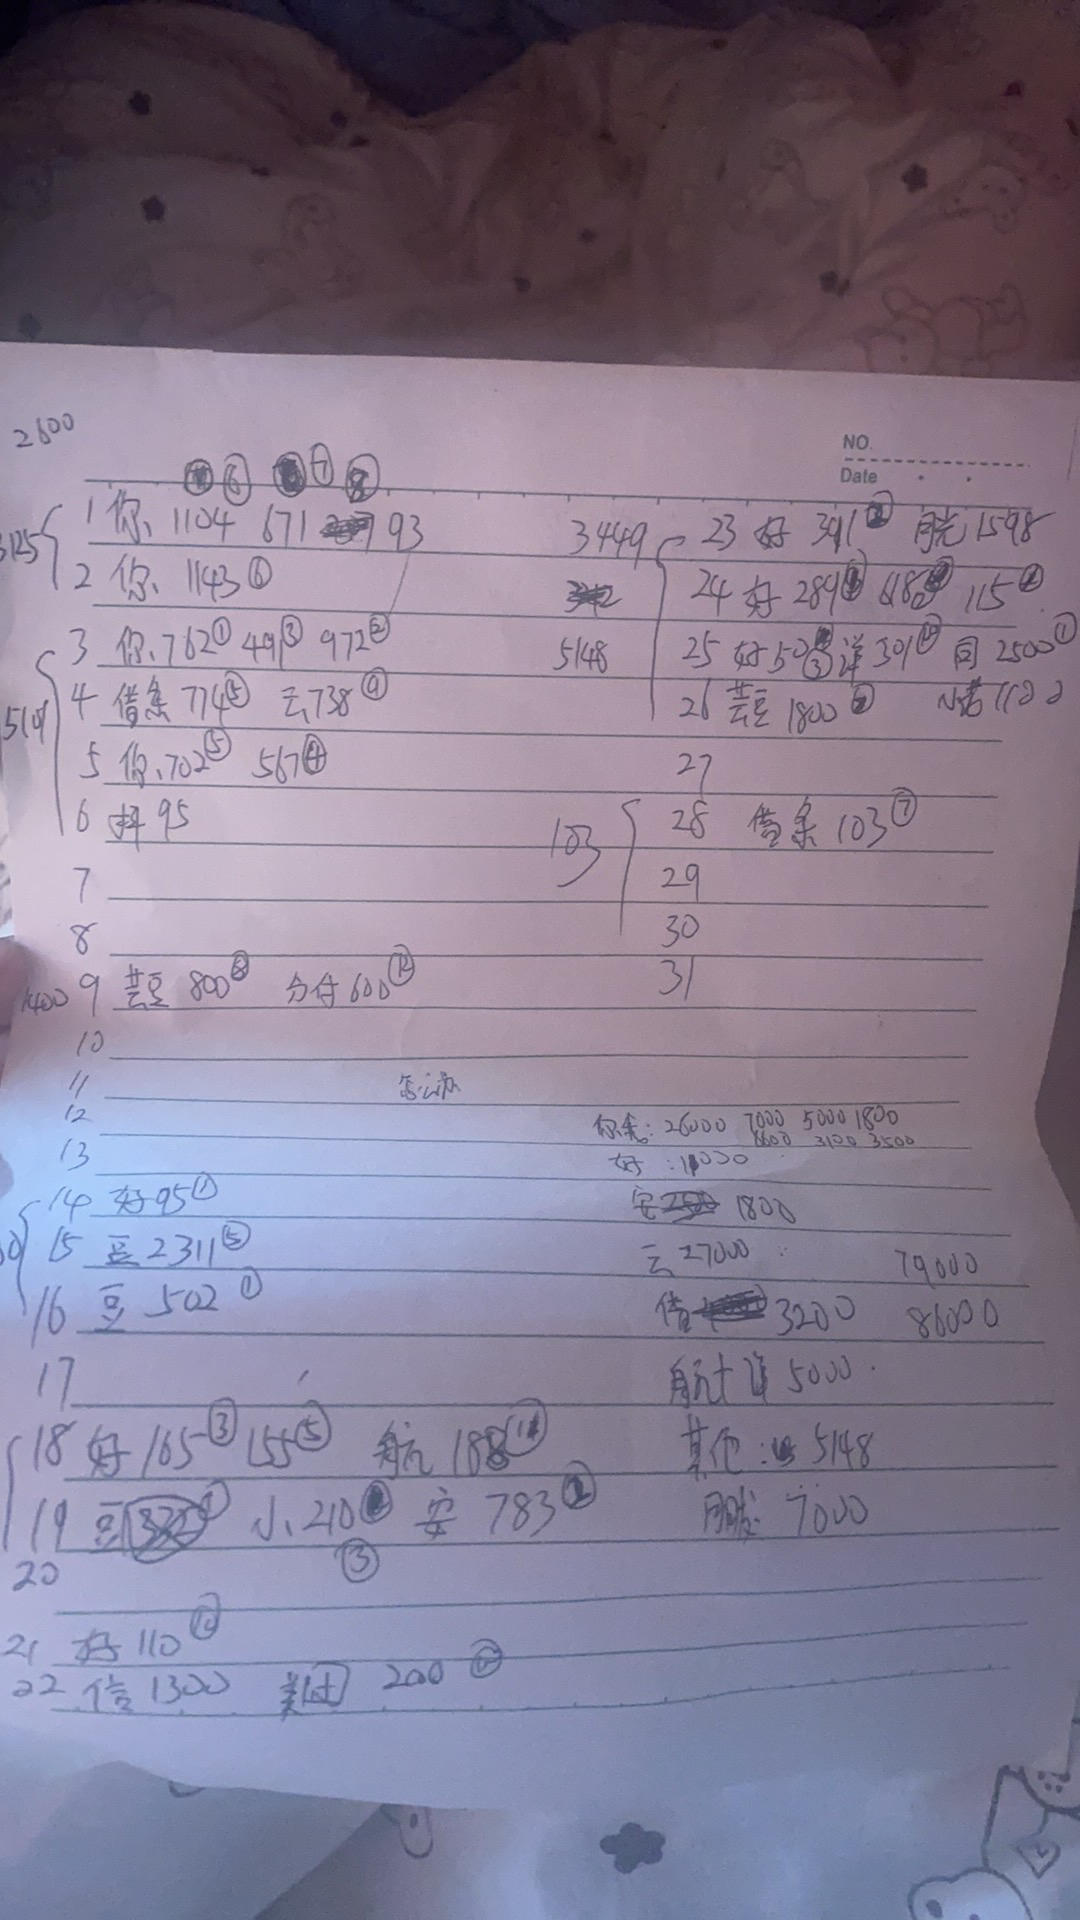 2600
NO.
Date
⑥ ⑦ ⑧
1 你 1104 671 93
2 你 1143⑥
3 你 762① 491③ 972②
5101 4 借条 774⑤ 云 738⑨
5 你 702⑤ 567④
6 抖 95
7
8
1400 9 芸豆 800⑧ 分付 600⑫
10
11 怎么办
12
13
14 好 95①
15 豆 2311⑤
16 豆 502①
17
18 好 165③ 155⑤ 航 188⑪
19 豆 小 210 安 783②
③
20
21 好 110⑫
22 信 1300 美团 200⑫
3449 23 好 391② 航 1598
24 好 289 115②
5148 25 好 50 ③ 洋 301 同 2500①
26 芸豆 1800② 小诺 1100
27
103 28 借条 103⑦
29
30
31
你我: 26000 7000 5000 1800
6600 3100 3500
好: 11000
安 1800
云 27000 79000
借 3200 86000
航 5000
其他: 5148
7000